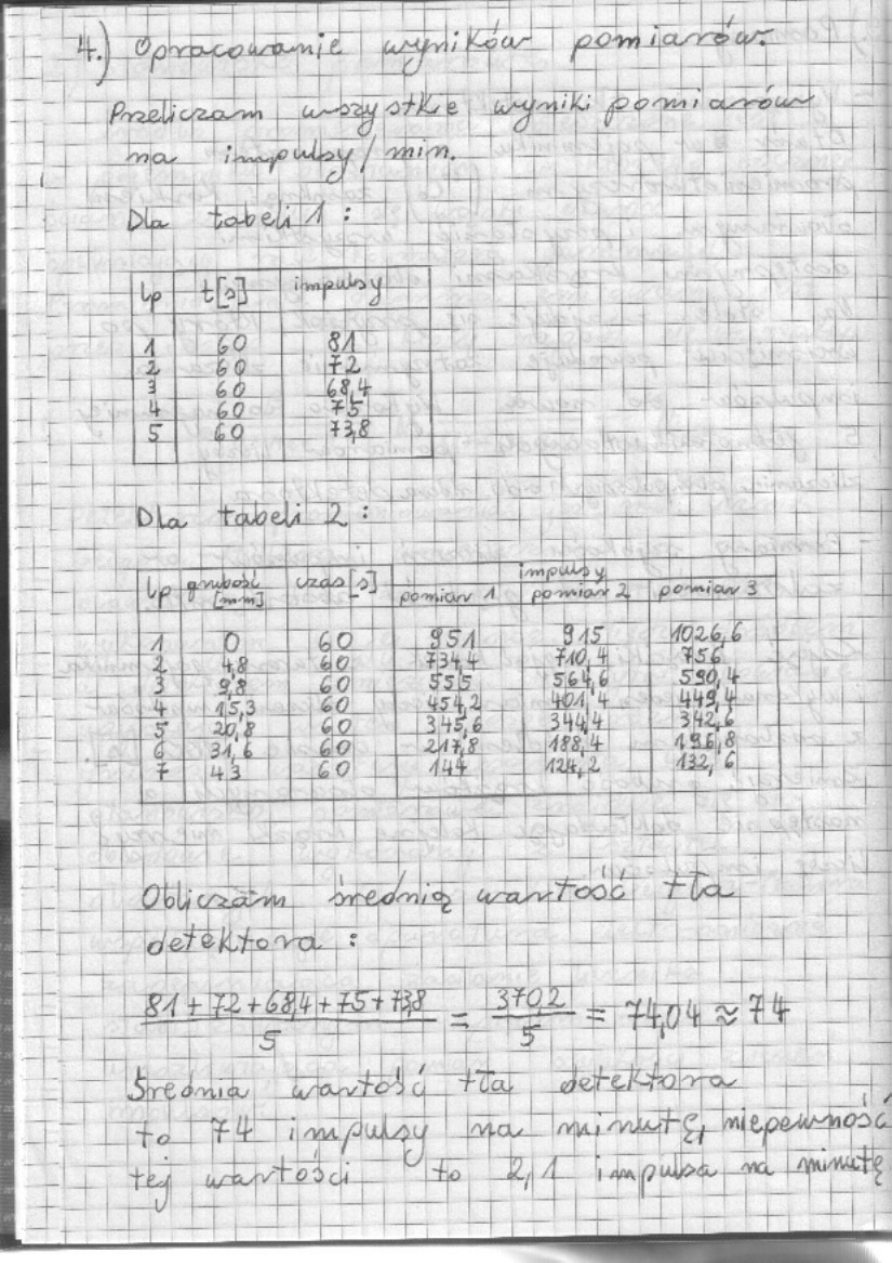 4.) Opracowanie wyników pomiarów.
Przeliczam wszystkie wyniki pomiarów
na impulsy/min.
Dla tabeli 1 :
lp t[s] impulsy
1 60 81
2 60 72
3 60 68,4
4 60 75
5 60 73,8
Dla tabeli 2 :
lp grubość [mm] czas[s] impulsy
pomiar 1 pomiar 2 pomiar 3
1 0 60 951 915 1026,6
2 4,8 60 734,4 710,4 756
3 9,8 60 555 564,6 590,4
4 15,3 60 454,2 401,4 449,4
5 20,8 60 345,6 344,4 342,6
6 31,6 60 217,8 188,4 196,8
7 43 60 144 124,2 132,6
Obliczam średnią wartość tła
detektora :
81+72+68,4+75+73,8 / 5 = 370,2 / 5 = 74,04 ≈ 74
Średnia wartość tła detektora
to 74 impulsy na minutę, niepewność
tej wartości to 2,1 impulsa na minutę